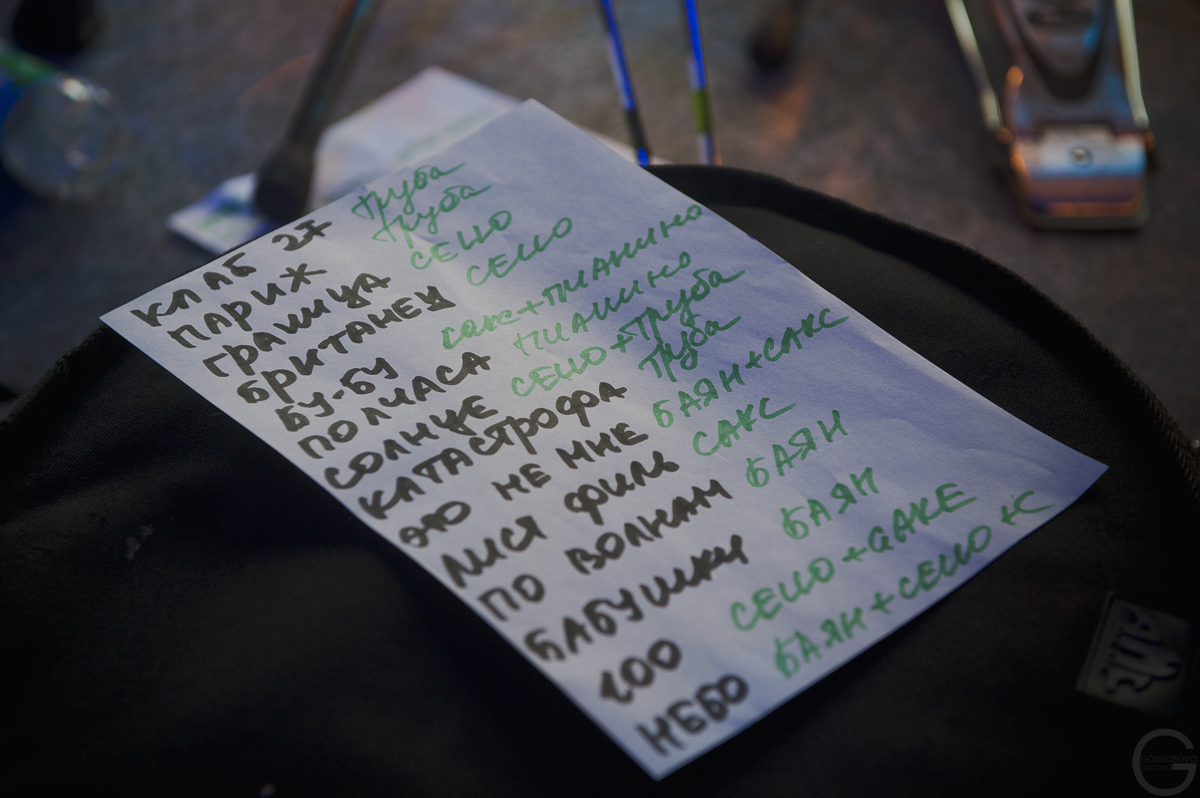 КЛАБ 27 труба
ПАРИЖ труба
ГРАНИЦА СЕЛЛО
БРИТАНЕЦ СЕЛЛО
БУ-БУ САКС+ПИАНИНО
ПОЛЧАСА ПИАНИНО
СОЛНЦЕ СЕЛЛО+ТРУБА
КАТАСТРОФА Труба
ЭТО НЕ МНЕ БАЯН+САКС
ЛИСЯ ФИЛЬ САКС
ПО ВОЛНАМ БАЯН
БАБУШКИ БАЯН
100 СЕЛЛО+САКЕ
НЕБО БАЯН+СЕЛЛО+С